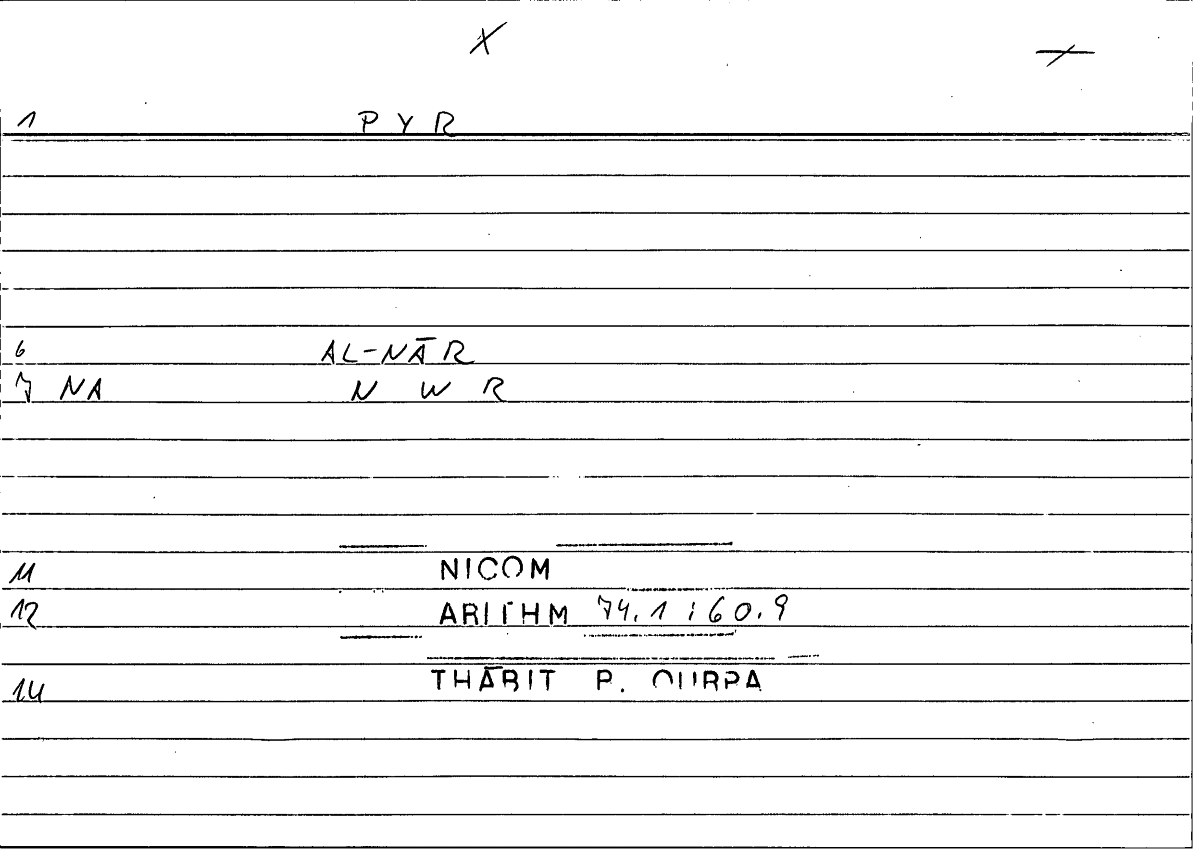 X
1 PYR
6 AL-NĀR
7 NA N W R
11 NICOM
12 ARITHM 74.1 : 60.9
14 THĀBIT B. QURRA